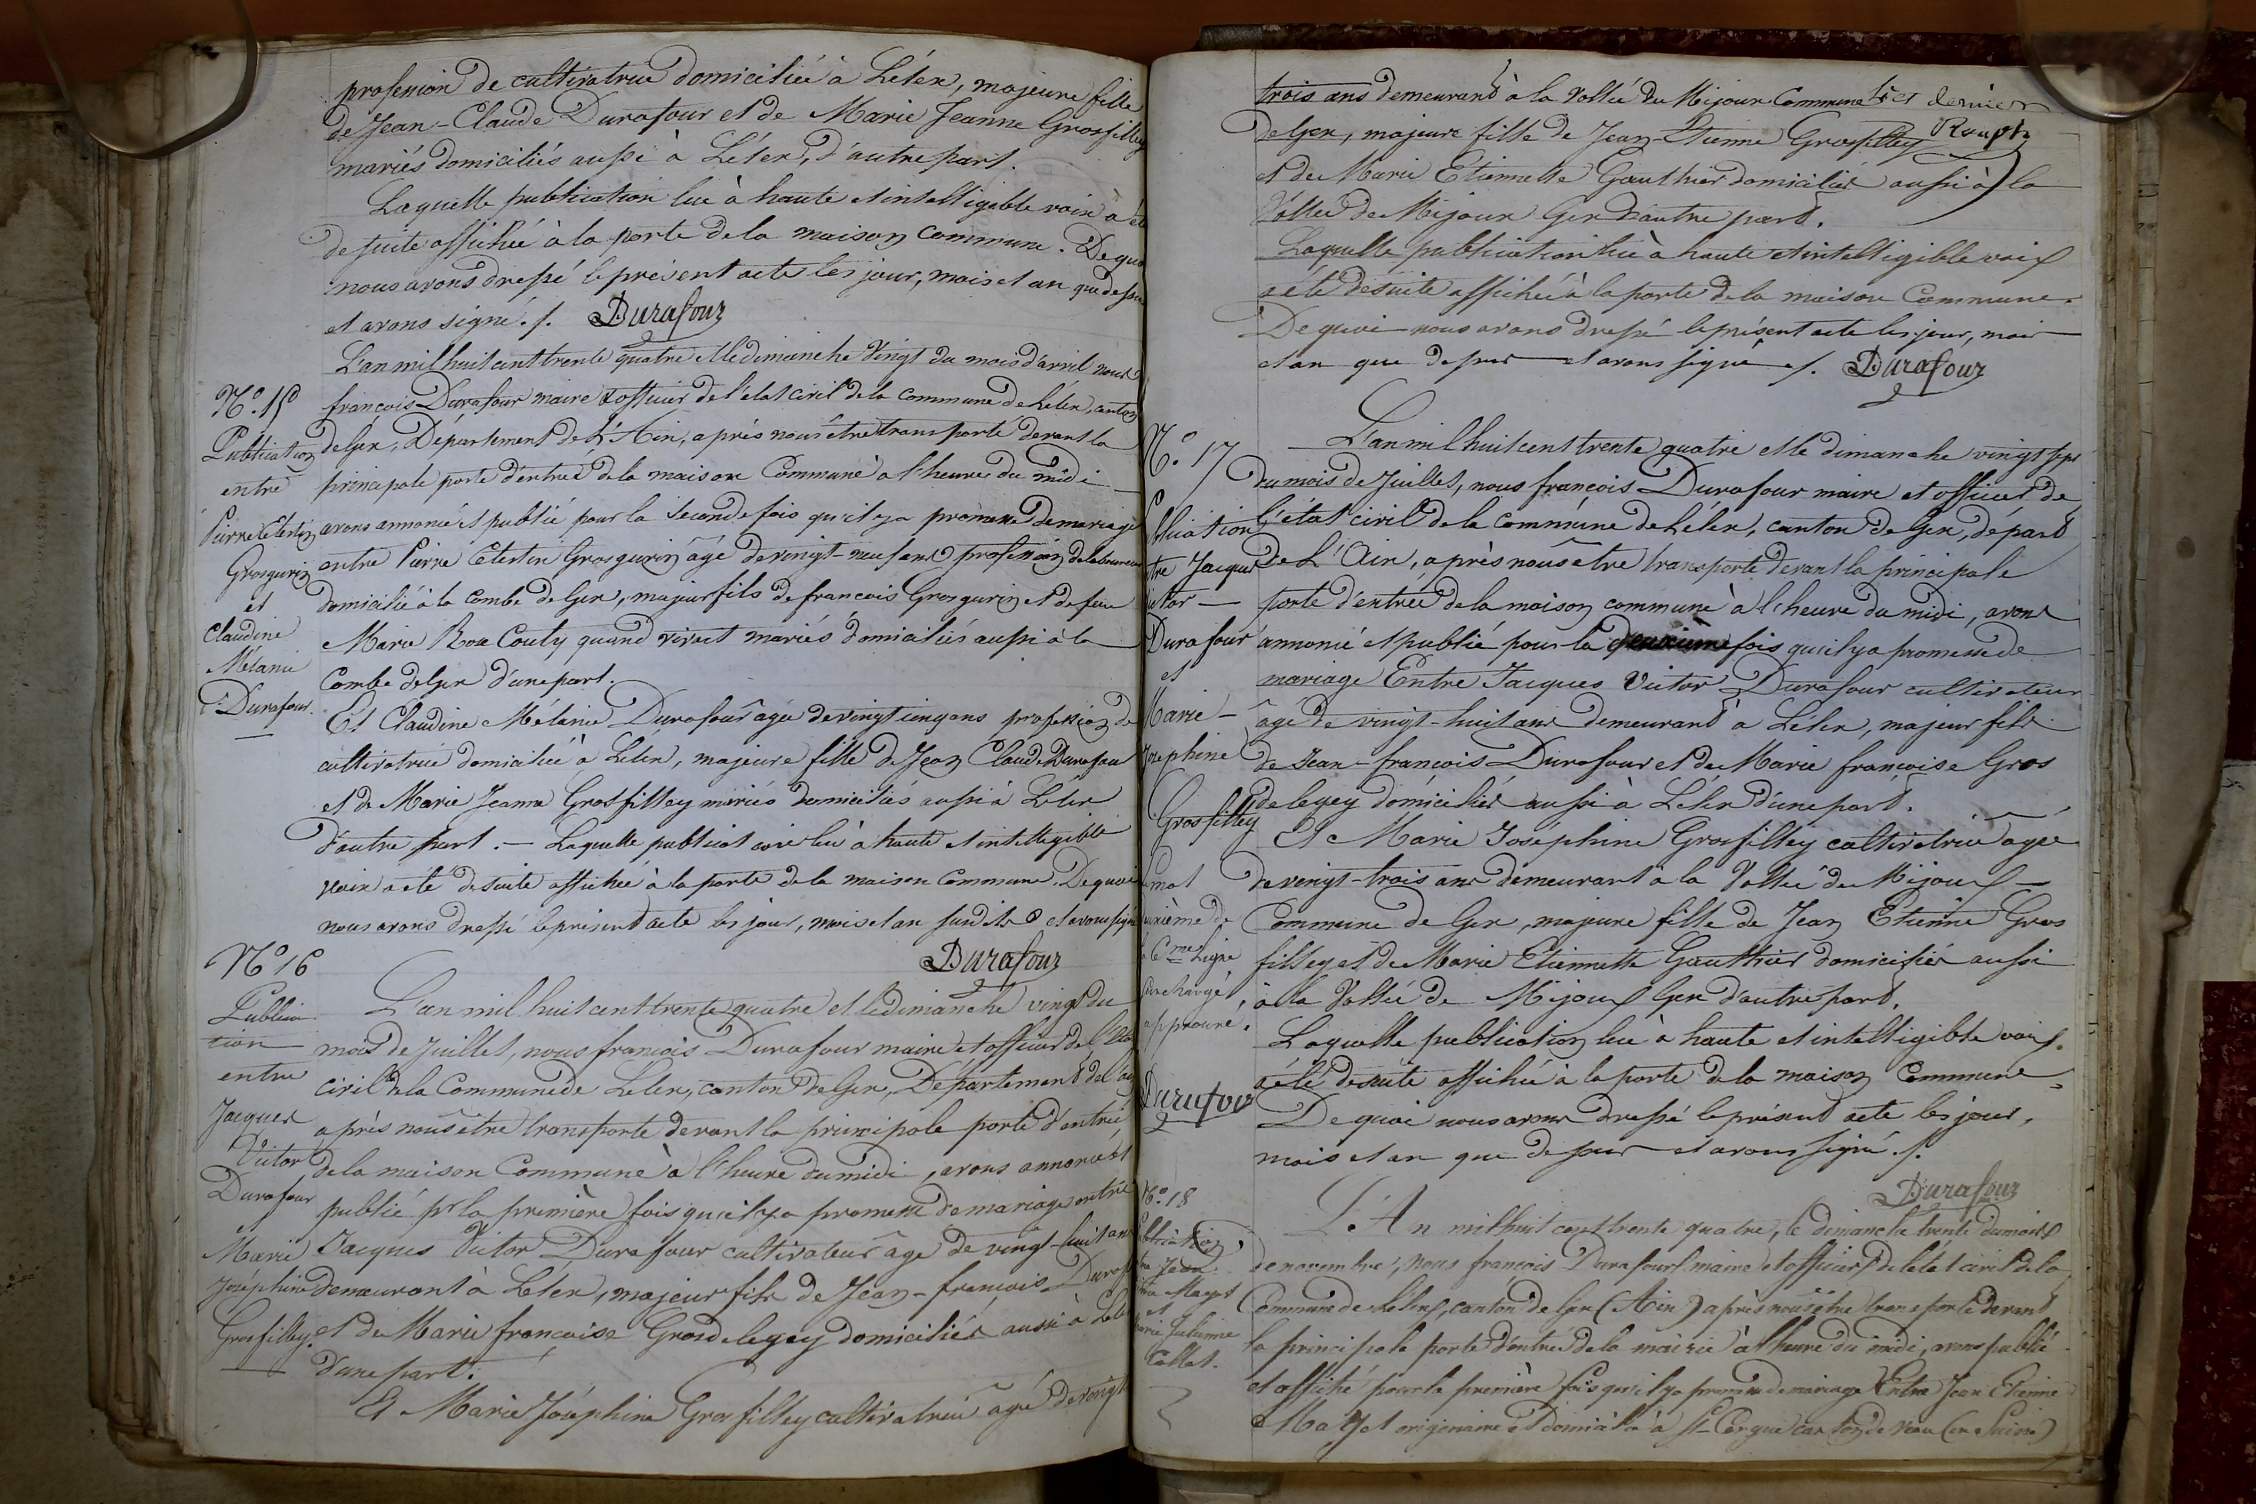 profession de cultivatrice domiciliée à Lélex, majeure fille
de Jean-Claude Durafour et de Marie Jeanne Grosfilley
mariés domiciliés aussi à Lélex, d'autre part.
Laquelle publication lue à haute et intelligible voix a été
de suite affichée à la porte de la maison commune. De quoi
nous avons dressé le présent acte les jour, mois et an que dessus
et avons signé ./. Durafour
N.o 15
Publication
entre
Pierre Celestin
Grosgurin
et
Claudine
Mélanie
Durafour.
L'an mil huit cent trente quatre et le dimanche Vingt du mois d'avril nous
françois Durafour maire & officier de l'état civil de la commune de Lélex, canton
de Gex, Département de L'Ain, après nous être transporté devant la
principale porte d'entrée de la maison Commune à l'heure du midi
avons annoncé et publié pour la seconde fois qu'il y a promesse de mariage
entre Pierre Celestin Grosgurin âgé de vingt-neuf ans profession de laboureur
domicilié à la Combe de Gex, majeur fils de françois Grosgurin et de feue
Marie Roa Couty quand vivait mariés domiciliés aussi à la
Combe de Gex d'une part.
Et Claudine Mélanie Durafour agée de vingt cinq ans profession de
cultivatrice domiciliée à Lélex, majeure fille de Jean Claude Durafour
et de Marie Jeanne Grosfilley mariés domiciliés aussi à Lélex
d'autre part. — Laquelle publication lue à haute et intelligible
voix a été de suite affichée à la porte de la maison Commune. De quoi
nous avons dressé le présent acte les jour, mois et an susdits et avons signé
Durafour
N.o 16
Publica
tion
entre
Jacques
Victor
Durafour
et
Marie
Joséphine
Grosfilley.
L'an mil huit cent trente quatre et le dimanche vingt du
mois de Juillet, nous françois Durafour maire et officier de l'état
civil de la Commune de Lelex, canton de Gex, Département de l'ain
après nous être transporté devant la principale porte d'entrée
de la maison Commune à l'heure du midi, avons annoncé et
publié pr la première fois qu'il y a promesse de mariage entre
Jacques Victor Durafour cultivateur âgé de vingt-huit ans
demeurant à Lélex, majeur fils de Jean-françois Durafour
et de Marie françoise Grosdelegey domiciliés aussi à Lélex
d'une part.
Et Marie Joséphine Grosfilley cultivatrice agée de vingt
trois ans demeurant à la Vallée du Mijoux Commune
De Gex, majeure fille de Jean-Etienne Grosfilley
et de Marie Etiennette Gauthier domiciliés aussi à la
Vallée de Mijoux Gex d'autre part.
Laquelle publication lue à haute et intelligible voix
a été de suite affichée à la porte de la maison Commune.
De quoi nous avons dressé le présent acte les jour, mois
et an que dessus et avons signé ./. Durafour
N.o 17
Jacques
Durafour
et
Marie
Josephine
Grosfilley
approuvé.
Durafour
L'an mil huit cent trente quatre et le dimanche vingt sept
du mois de Juillet, nous françois Durafour maire et officier de
l'état civil de la commune de Lélex, canton de Gex, départ
de L'Ain, après nous être transporté devant la principale
porte d'entrée de la maison commune à l'heure du midi, avons
annoncé et publié pour la deuxième fois qu'il y a promesse de
mariage Entre Jacques Victor Durafour cultivateur
âgé de vingt-huit ans demeurant à Lélex, majeur fils
de Jean-françois Durafour et de Marie françoise Gros
delegey domiciliés aussi à Lélex d'une part.
Et Marie Joséphine Grosfilley cultivatrice agée
de vingt-trois ans demeurant à la Vallée du Mijoux —
Commune de Gex, majeure fille de Jean Etienne Gros
filley et de Marie Etiennette Gauthier domiciliés aussi
à la Vallée de Mijoux Gex d'autre part.
Laquelle publication lue à haute et intelligible voix.
a été de suite affichée à la porte de la maison Commune
De quoi nous avons dressé le présent acte les jour,
mois et an que dessus et avons signé ./.
Durafour
N.o 18
et
Collet.
L'An mil huit cent trente quatre, le dimanche trente du mois
de novembre, nous françois Durafour maire et officier de l'état civil de la
Commune de Lelex, canton de Gex (Ain) après nous être transporté devant
la principale porte d'entrée de la mairie à l'heure du midi, avons publié
et affiché pour la première fois qu'il y a promesse de mariage Entre Jean Etienne
Mayet originaire et domicilié à St Cergue canton de Vaux (en Suisse)